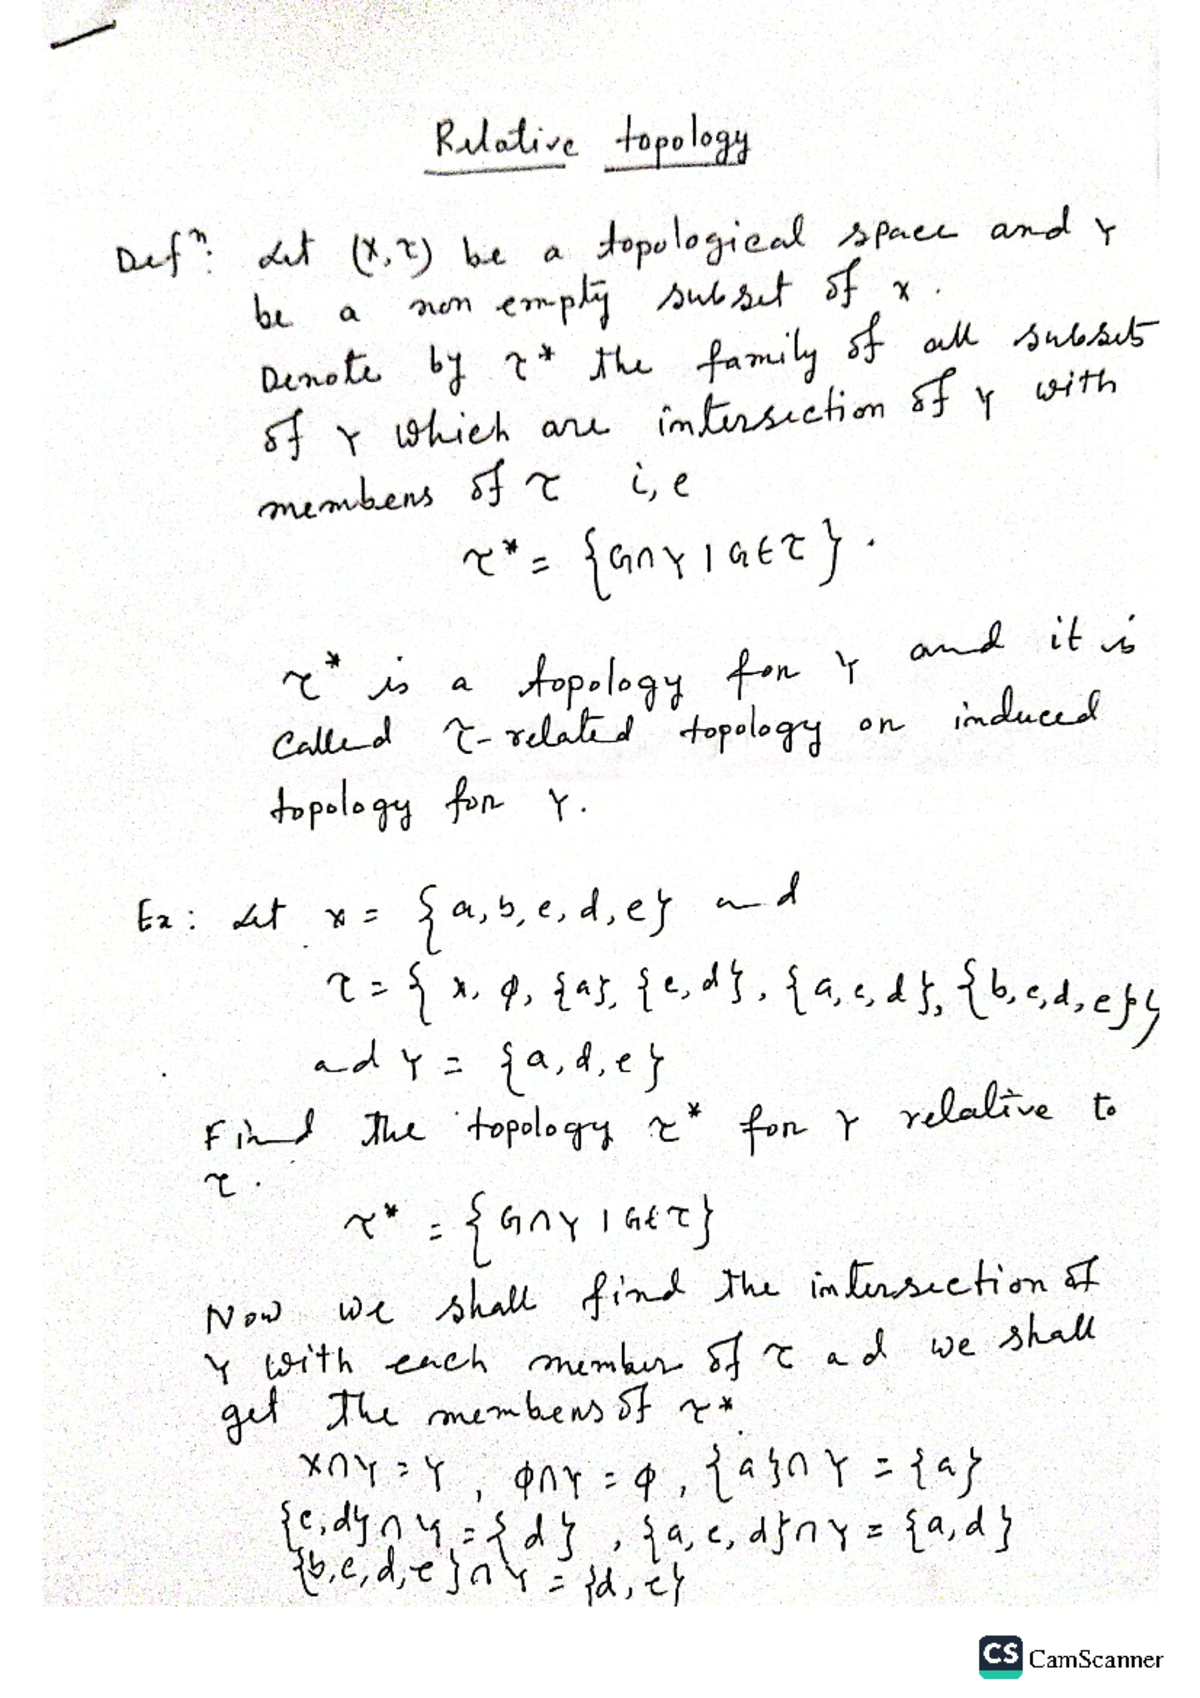 Relative topology
Defⁿ: Let (X, τ) be a topological space and Y
be a non empty subset of X.
Denote by τ* the family of all subsets
of Y which are intersection of Y with
members of τ i,e
τ* = {G∩Y | G∈τ}.
τ* is a topology for Y and it is
called τ-related topology or induced
topology for Y.
Ex: Let X = {a, b, c, d, e} and
τ = { X, φ, {a}, {c, d}, {a, c, d}, {b, c, d, e}}
ad Y = {a, d, e}
Find the topology τ* for Y relative to
τ.
τ* = {G∩Y | G∈τ}
Now we shall find the intersection of
Y with each member of τ ad we shall
get the members of τ*
X∩Y = Y, φ∩Y = φ, {a}∩Y = {a}
{c, d}∩Y = {d}, {a, c, d}∩Y = {a, d}
{b, c, d, e}∩Y = {d, e}
CS CamScanner